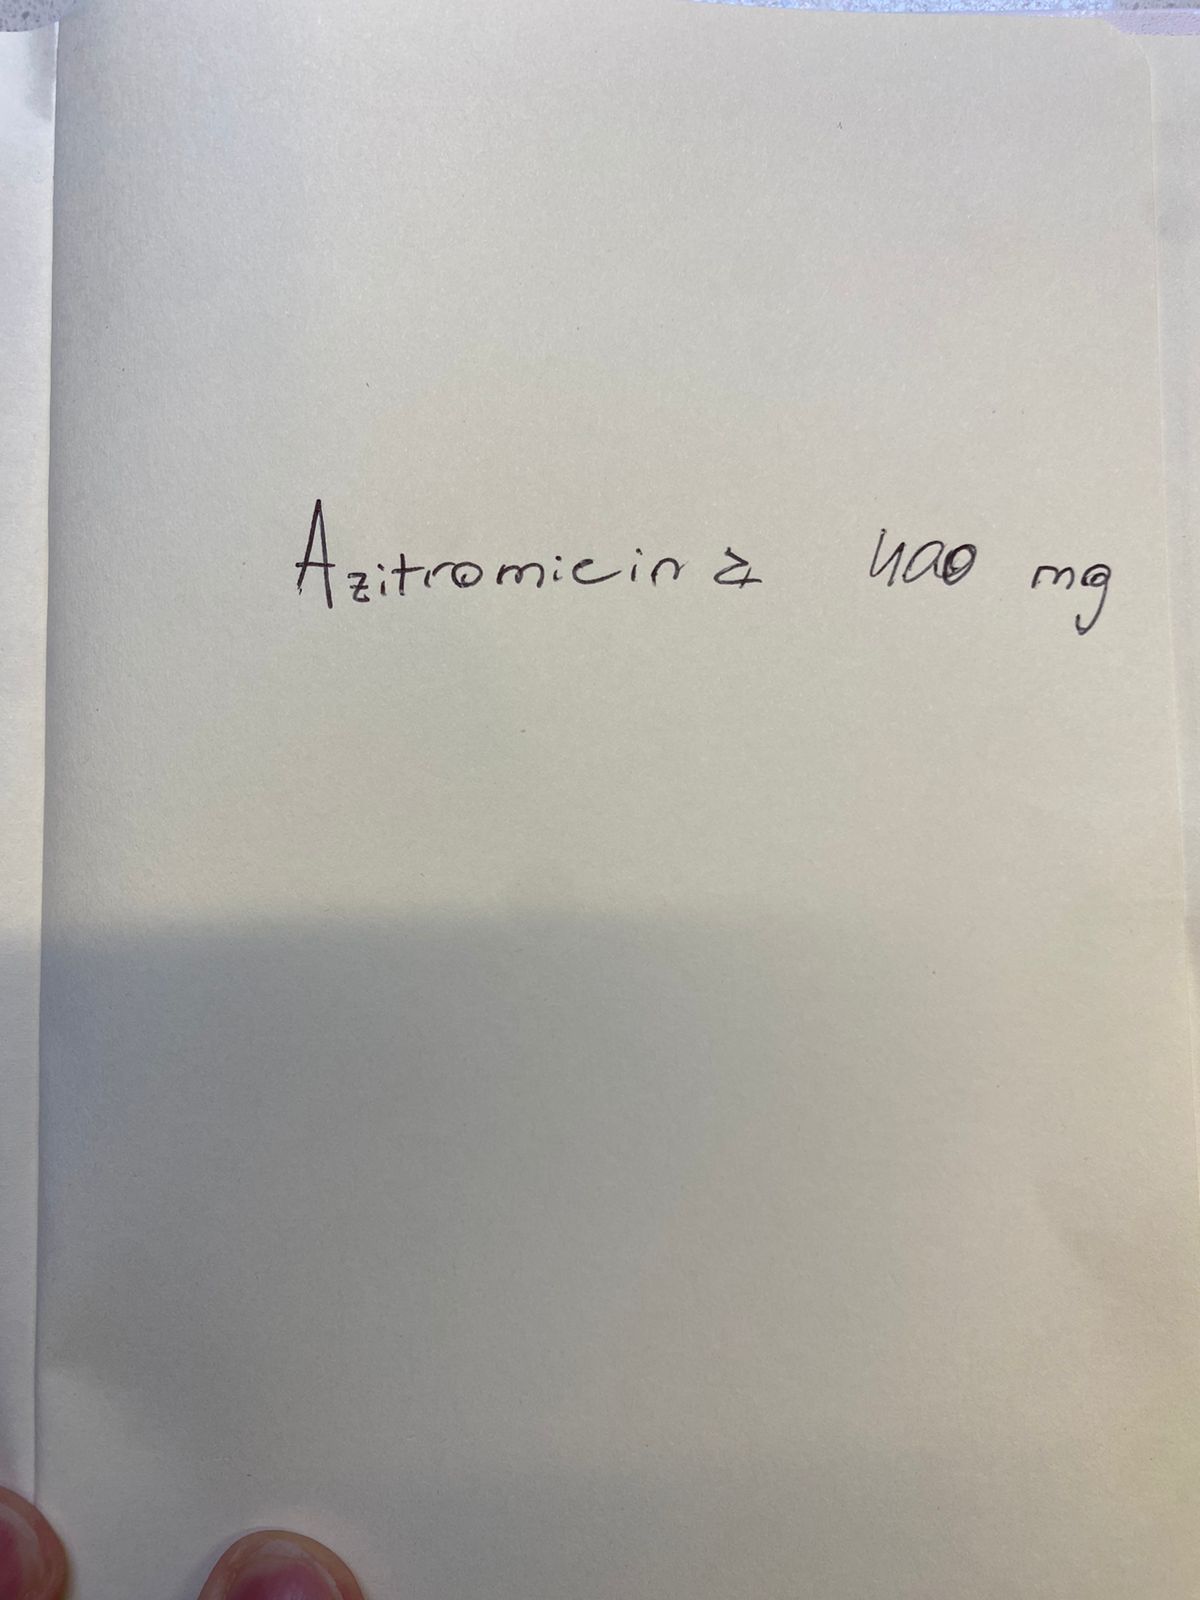 Azitromicin à 400 mg